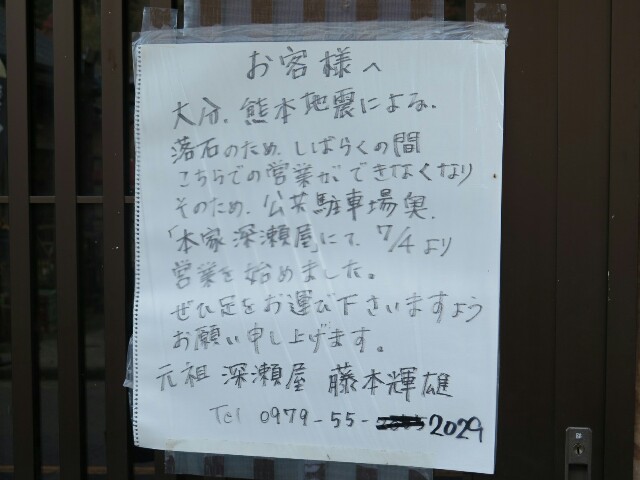 お客様へ
大分、熊本地震による、
落石のため、しばらくの間
こちらでの営業ができなくなり、
そのため、公共駐車場奥、
「本家 深瀬屋」にて、7/4より
営業を始めました。
ぜひ足をお運び下さいますよう
お願い申し上げます。
元祖 深瀬屋 藤本輝雄
Tel 0979-55-2029